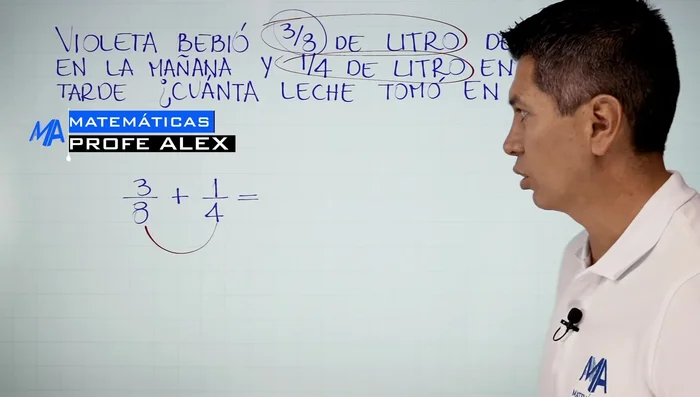 VIOLETA BEBIÓ 3/8 DE LITRO DE
EN LA MAÑANA Y 1/4 DE LITRO EN
TARDE ¿CUÁNTA LECHE TOMÓ EN
MA MATEMÁTICAS
PROFE ALEX
3/8 + 1/4 =
MA